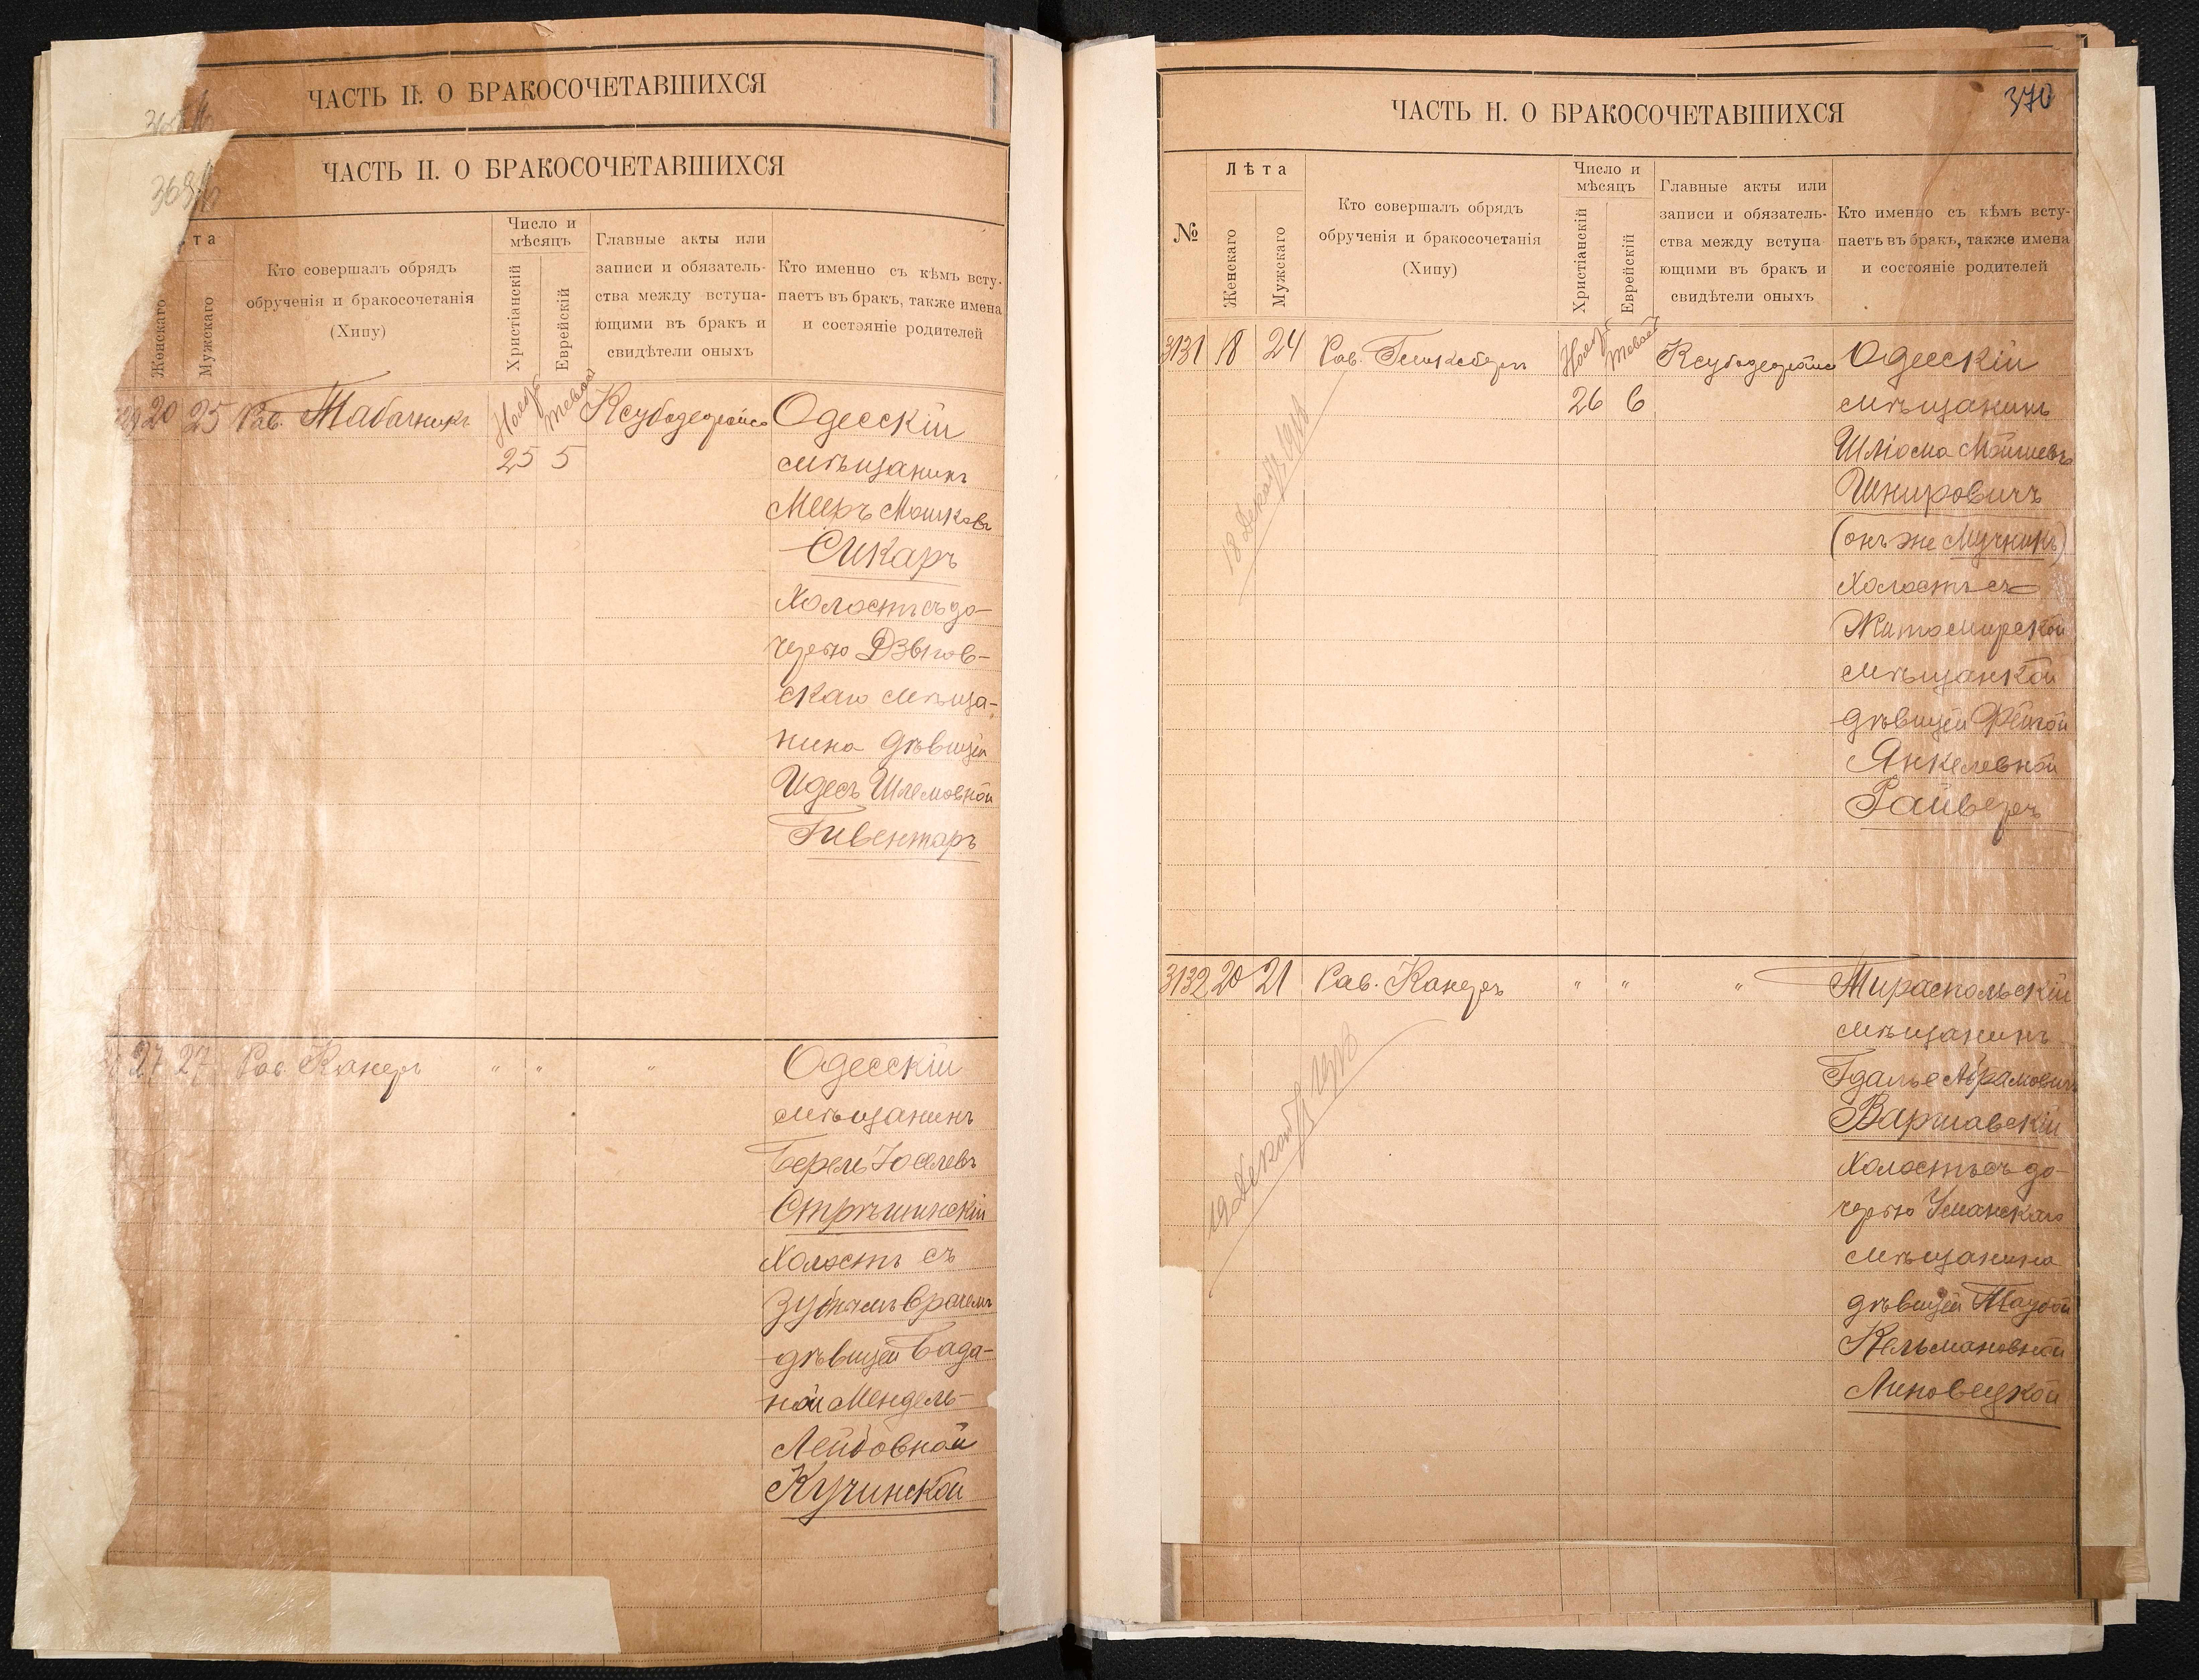 ЧАСТЬ II. О БРАКОСОЧЕТАВШИХСЯ
ЧАСТЬ II. О БРАКОСОЧЕТАВШИХСЯ
та
Женскаго
Мужскаго
Кто совершалъ обрядъ
обрученія и бракосочетанія
(Хипу)
Число и
мѣсяцъ
Христіанскій
Еврейскій
Главные акты или
записи и обязатель-
ства между вступа-
ющими въ бракъ и
свидѣтели оныхъ
Кто именно съ кѣмъ всту-
паетъ въ бракъ, также имена
и состояніе родителей
20 25 Рав. Табачникъ
Нояб
25 5
Одесскій
мѣщанинъ
Мееръ Мошковъ
Сикаръ
холостъ съ до-
черью Дзыгов-
скаго мѣща-
нина дѣвицей
Идесъ Шлемовной
Гивентаръ
27 27 Рав. Канеръ " " "
Одесскій
мѣщанинъ
Берель Іоселевъ
Стрѣшинскій
холостъ съ
зубнымъ врачемъ
дѣвицей Бада-
ной Мендель-
Лейбовной
Кучинской
ЧАСТЬ II. О БРАКОСОЧЕТАВШИХСЯ
370
№
Лѣта
Женскаго
Мужскаго
Кто совершалъ обрядъ
обрученія и бракосочетанія
(Хипу)
Число и
мѣсяцъ
Христіанскій
Еврейскій
Главные акты или
записи и обязатель-
ства между вступа
ющими въ бракъ и
свидѣтели оныхъ
Кто именно съ кѣмъ всту-
паетъ въ бракъ, также имена
и состояніе родителей
3131 18 24 Рав. Гинксберъ
Нояб
26 6
Одесскій
мѣщанинъ
Шліома Мойшевъ
Шнировичъ
(онъ же Мучникъ)
холостъ съ
Житомирской
мѣщанкой
дѣвицей Фейгой
Янкелевной
Райзеръ
3132 20 21 Рав. Канеръ " " "
Тираспольскій
мѣщанинъ
Гдалье Абрамовичъ
Варшавскій
холостъ съ до-
черью Уманскаго
мѣщанина
дѣвицей Таубой
Кельмановной
Линовецкой